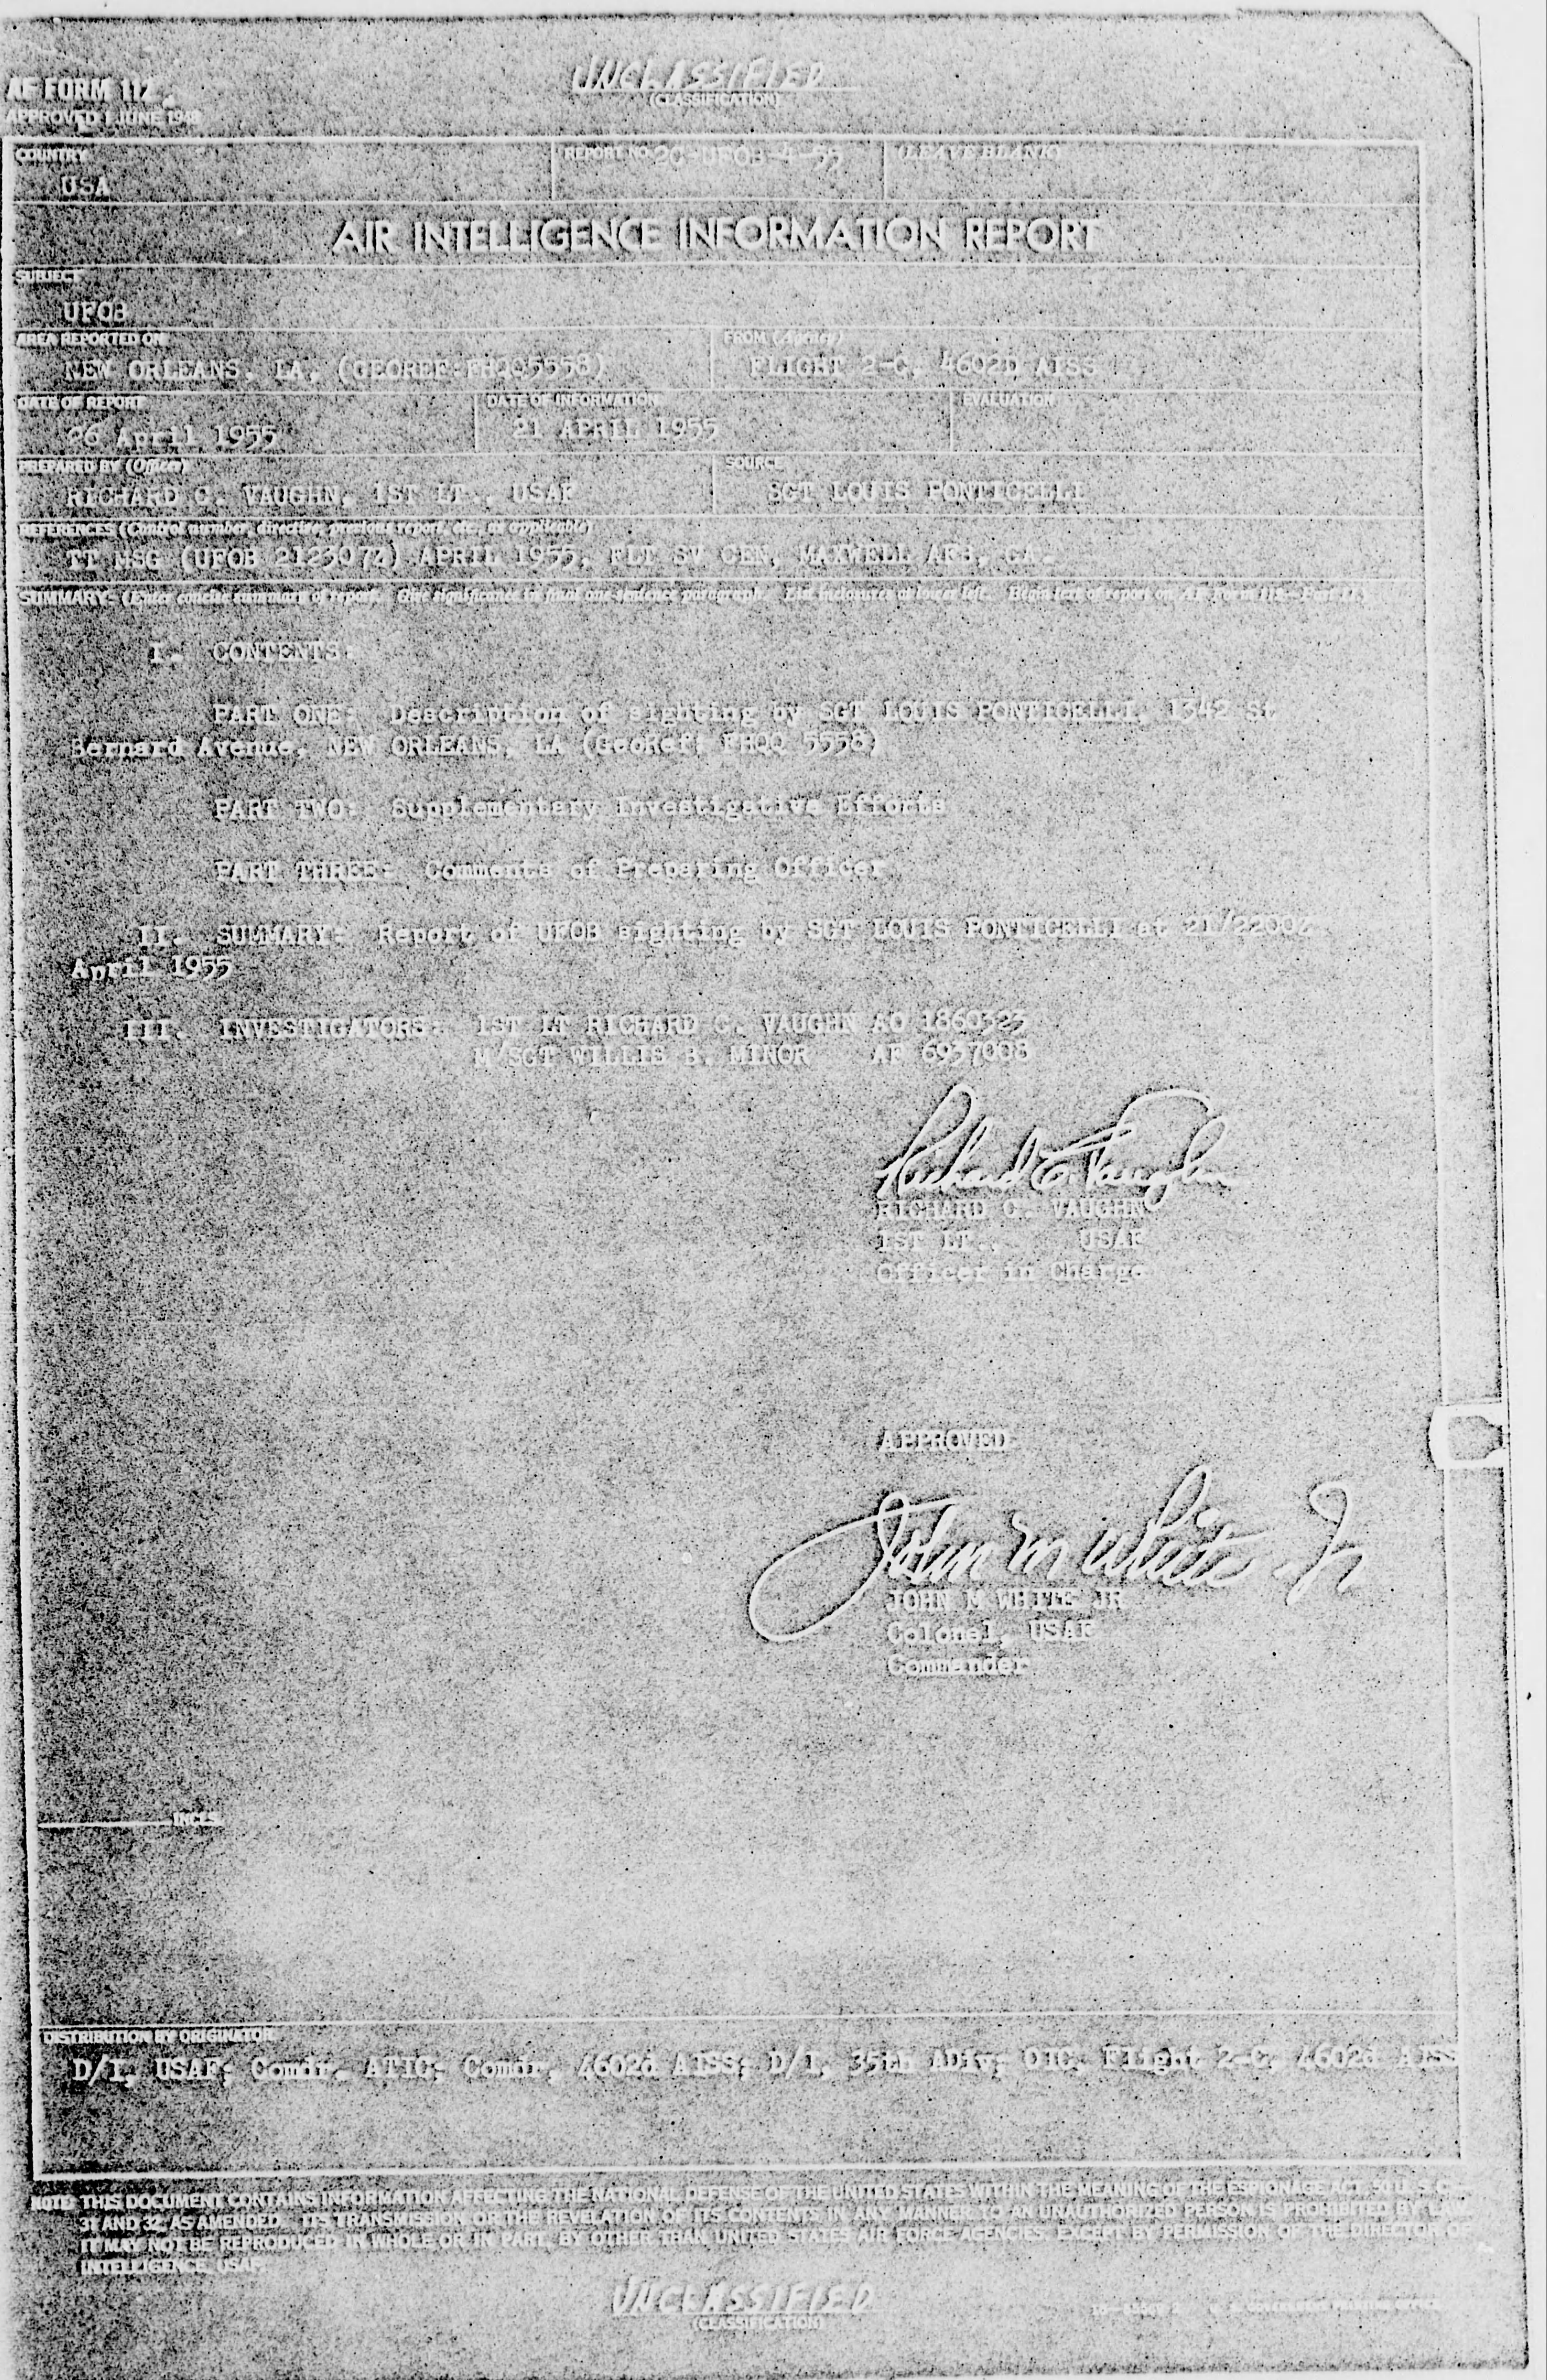 UNCLASSIFIED
(CLASSIFICATION)
AF FORM 112
APPROVED 1 JUNE 1948
COUNTRY
USA
REPORT NO. 2C-UFOB-4-55
(LEAVE BLANK)
AIR INTELLIGENCE INFORMATION REPORT
SUBJECT
UFOB
AREA REPORTED ON
NEW ORLEANS, LA, (GEOREF:FHQQ5558)
FROM (Agency)
FLIGHT 2-C, 4602D AISS
DATE OF REPORT
26 April 1955
DATE OF INFORMATION
21 APRIL 1955
EVALUATION
PREPARED BY (Officer)
RICHARD C. VAUGHN, 1ST LT., USAF
SOURCE
SGT LOUIS PONTICELLI
REFERENCES (Control number, directive, previous report, etc., as applicable)
TT MSG (UFOB 212307Z) APRIL 1955, FLT SV CEN, MAXWELL AFB, GA.
SUMMARY: (Enter concise summary of report. Give significance in final one-sentence paragraph. List inclosures at lower left. Begin text of report on AF Form 112—Part II.)
I. CONTENTS:
PART ONE: Description of sighting by SGT LOUIS PONTICELLI, 1342 St
Bernard Avenue, NEW ORLEANS, LA (GeoRef: FHQQ 5558)
PART TWO: Supplementary Investigative Efforts
PART THREE: Comments of Preparing Officer
II. SUMMARY: Report of UFOB sighting by SGT LOUIS PONTICELLI at 21/2200Z
April 1955
III. INVESTIGATORS: 1ST LT RICHARD C. VAUGHN AO 1860323
M/SGT WILLIS B. MINOR AF 6937008
Richard C. Vaughn
RICHARD C. VAUGHN
1ST LT., USAF
Officer in Charge
APPROVED:
John M White Jr
JOHN M WHITE JR
Colonel, USAF
Commander
INCLS
DISTRIBUTION BY ORIGINATOR
D/I, USAF; Comdr, ATIC; Comdr, 4602d AISS; D/I, 35th ADiv; OIC, Flight 2-C, 4602d AISS
NOTE: THIS DOCUMENT CONTAINS INFORMATION AFFECTING THE NATIONAL DEFENSE OF THE UNITED STATES WITHIN THE MEANING OF THE ESPIONAGE ACT, 50 U. S. C.—
31 AND 32, AS AMENDED. ITS TRANSMISSION OR THE REVELATION OF ITS CONTENTS IN ANY MANNER TO AN UNAUTHORIZED PERSON IS PROHIBITED BY LAW.
IT MAY NOT BE REPRODUCED IN WHOLE OR IN PART, BY OTHER THAN UNITED STATES AIR FORCE AGENCIES, EXCEPT BY PERMISSION OF THE DIRECTOR OF
INTELLIGENCE, USAF.
UNCLASSIFIED
(CLASSIFICATION)